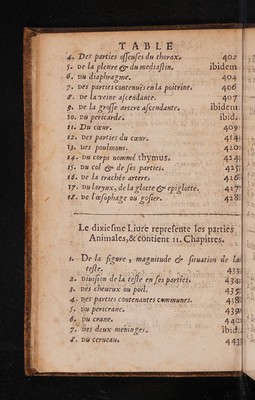 TABLE
4. Des parties osseuses du thorax. 402
5. De la pleure & du mediastin. ibidem
6. Du diaphragme. 404
7. Des parties contenuës en la poitrine. 406
8. De la veine ascendante. 407
9. De la grosse artere ascendante. ibidem
10. Du pericarde. ibid.
11. Du cœur. 409
12. Des parties du cœur. 414
13. Des poulmons. 420
14. Du corps nommé thymus. 424
15. Du col & de ses parties. 425
16. De la trachée artere. 426
17. Du larynx, de la glotte & epiglotte. 427
18. De l'œsophage ou gosier. 428
Le dixiesme Liure represente les parties
Animales, & contient 11. Chapitres.
1. De la figure, magnitude & situation de la
teste. 433
2. Diuision de la teste en ses parties. 434
3. Des cheueux ou poil. 435
4. Des parties contenantes communes. 438
5. Du pericrane. 439
6. Du crane. 440
7. Des deux meninges. ibid.
8. Du cerueau. 443